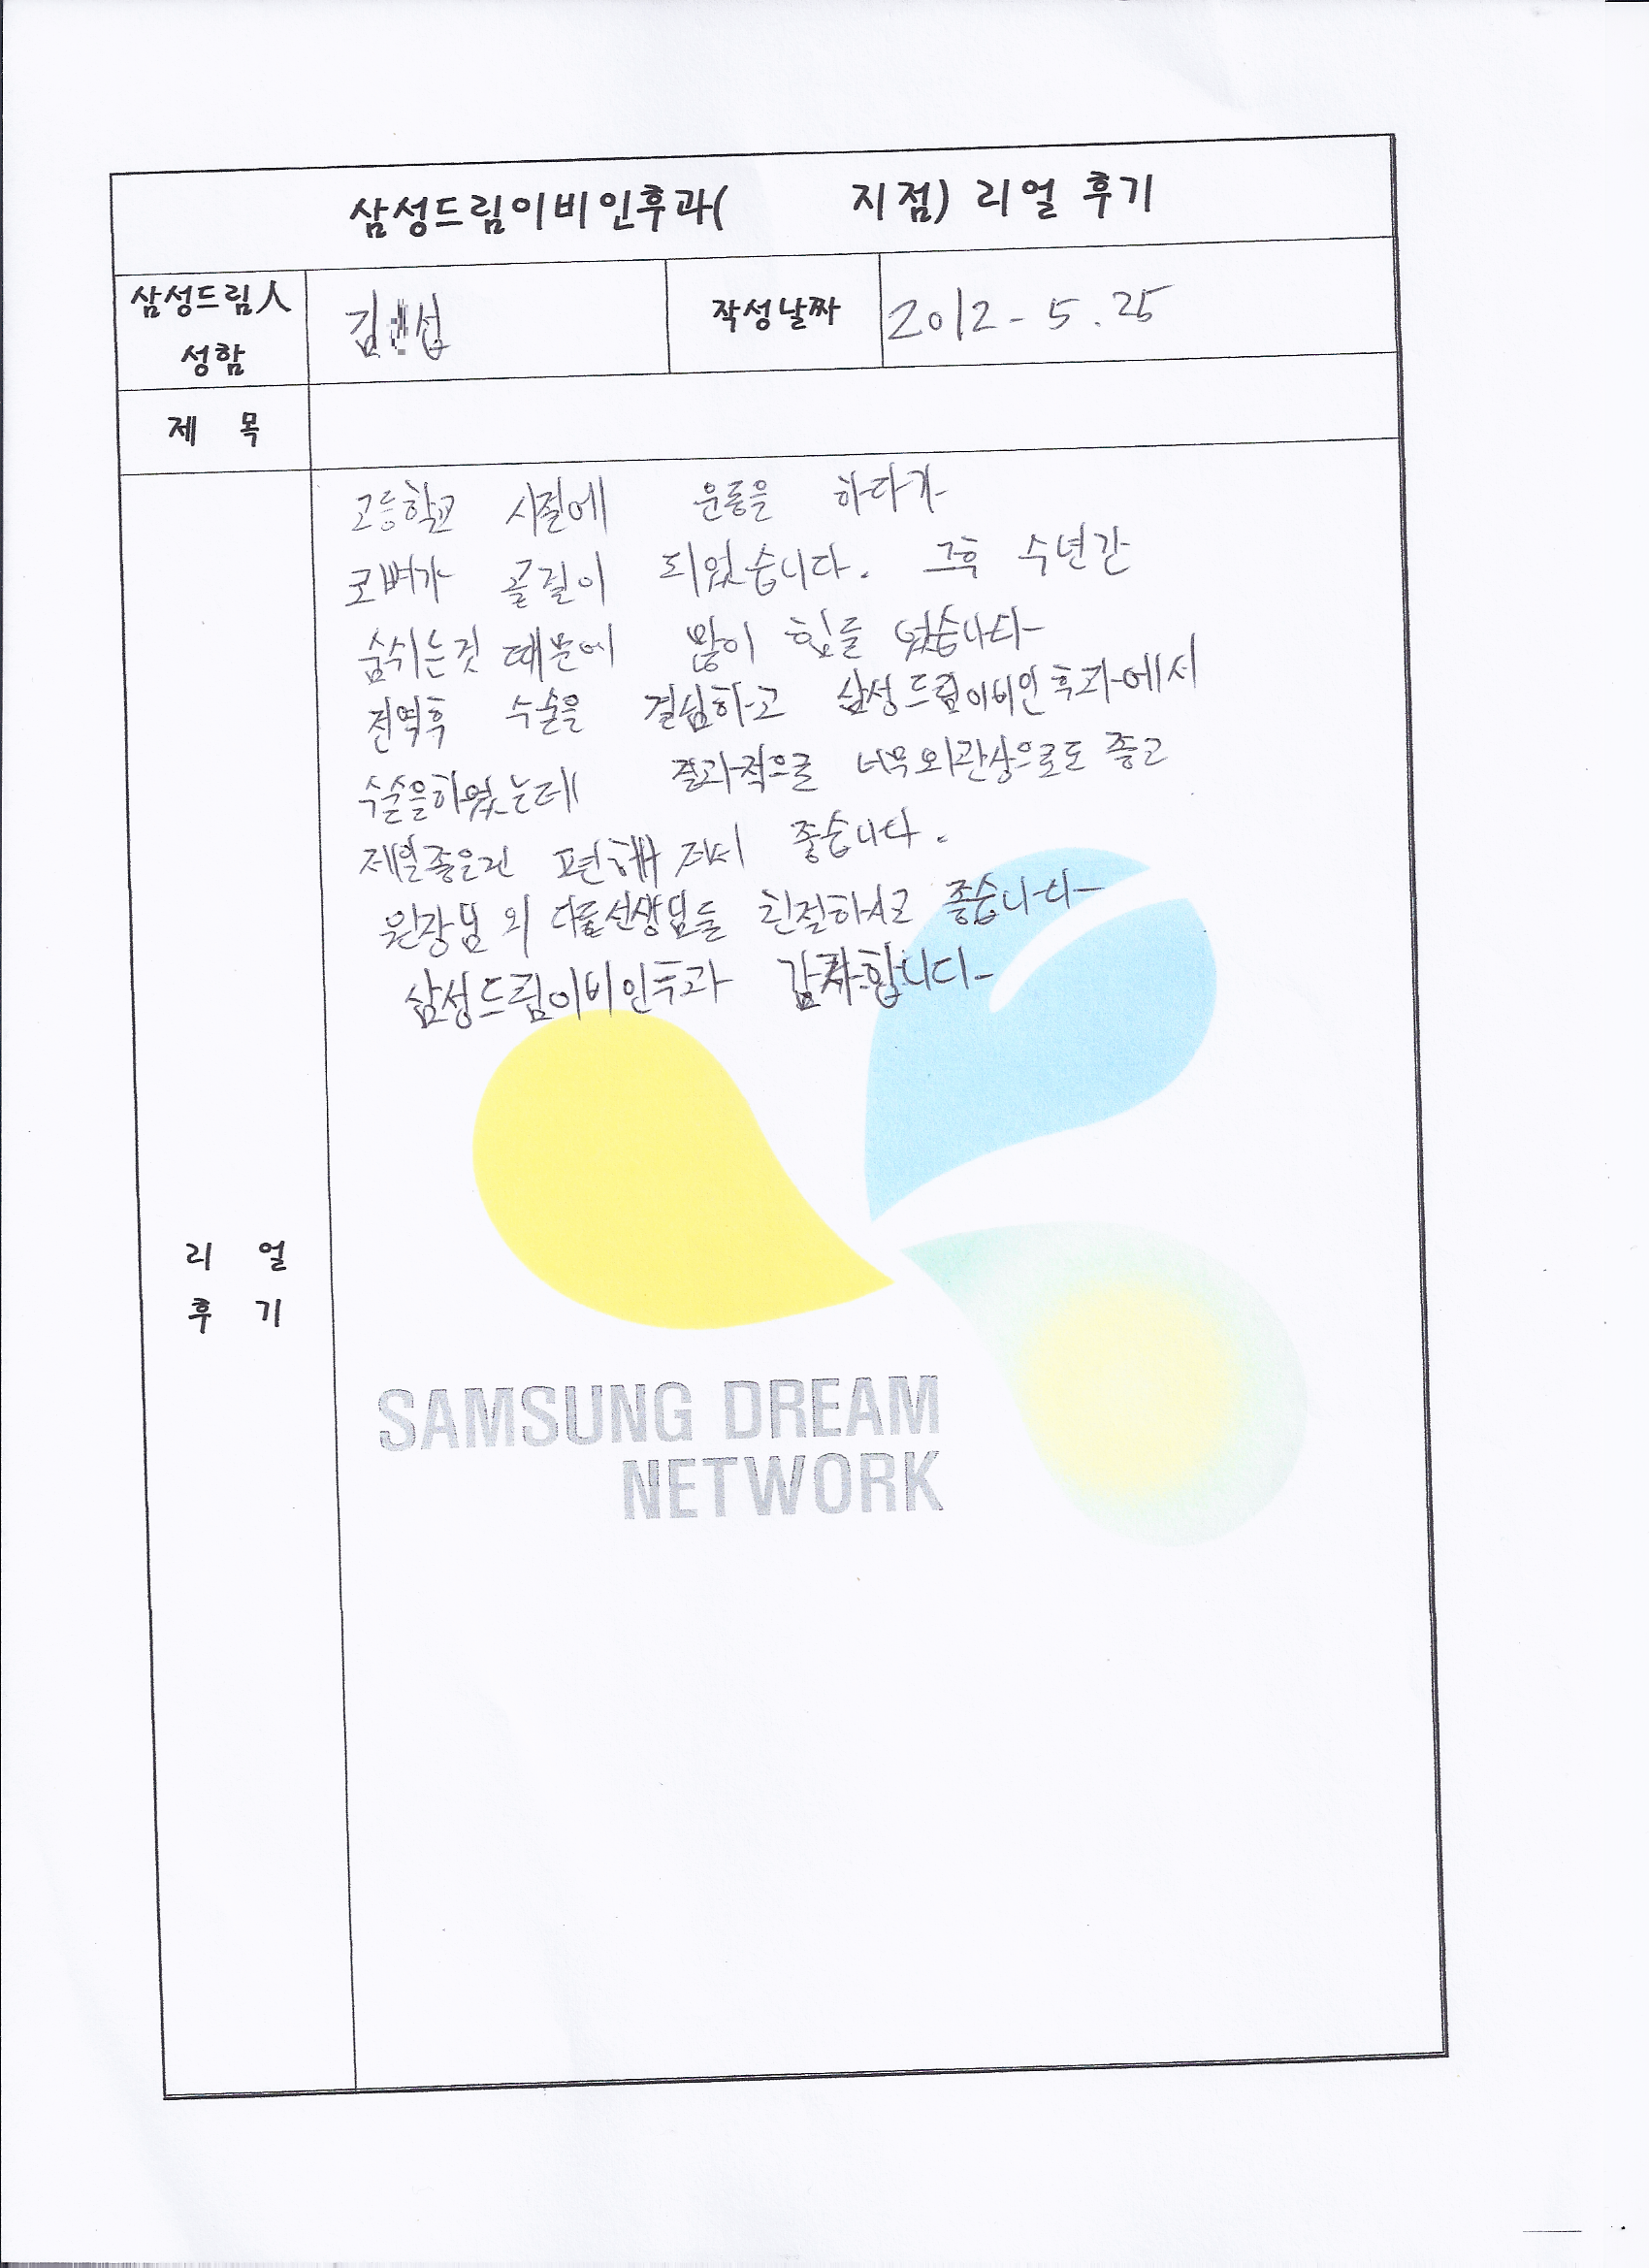 삼성드림이비인후과( 지점) 리얼 후기
삼성드림人
성함
김 섭
작성날짜
2012-5.25
제 목
고등학교 시절에 운동을 하다가
코뼈가 골절이 되었습니다. 그후 수년간
숨쉬는것 때문에 많이 힘들었습니다
전역후 수술을 결심하고 삼성드림이비인후과에서
수술을하였는데 결과적으로 너무 외관상으로도 좋고
제일좋은건 편해져서 좋습니다.
원장님 외 다른선생님들 친절하시고 좋습니다
삼성드림이비인후과 감사합니다
리 얼
후 기
SAMSUNG DREAM
NETWORK